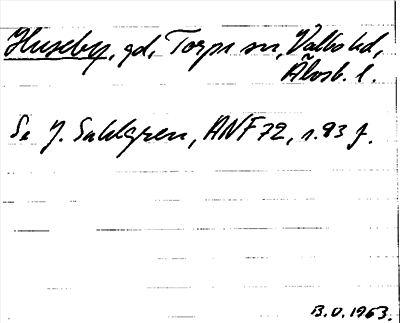 Huseby, gd, Torpa sn, Valbo hd,
Älvsb. l.
Se J. Sahlgren, ANF 72, s. 93 f.
B.O. 1963.